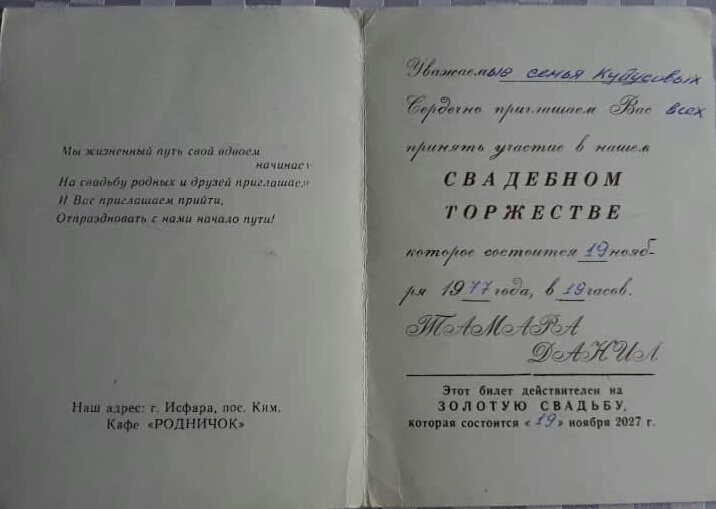 Мы жизненный путь свой вдвоем
начинаем
На свадьбу родных и друзей приглашаем
И Вас приглашаем прийти,
Отпраздновать с нами начало пути!
Наш адрес: г. Исфара, пос. Ким.
Кафе «РОДНИЧОК»
Уважаемые семья
Сердечно приглашаем Вас всех
принять участие в нашем
СВАДЕБНОМ
ТОРЖЕСТВЕ
которое состоится 19 нояб-
ря 1977 года, в 19 часов.
ТАМАРА
ДАНИЛ
Этот билет действителен на
ЗОЛОТУЮ СВАДЬБУ,
которая состоится «19» ноября 2027 г.